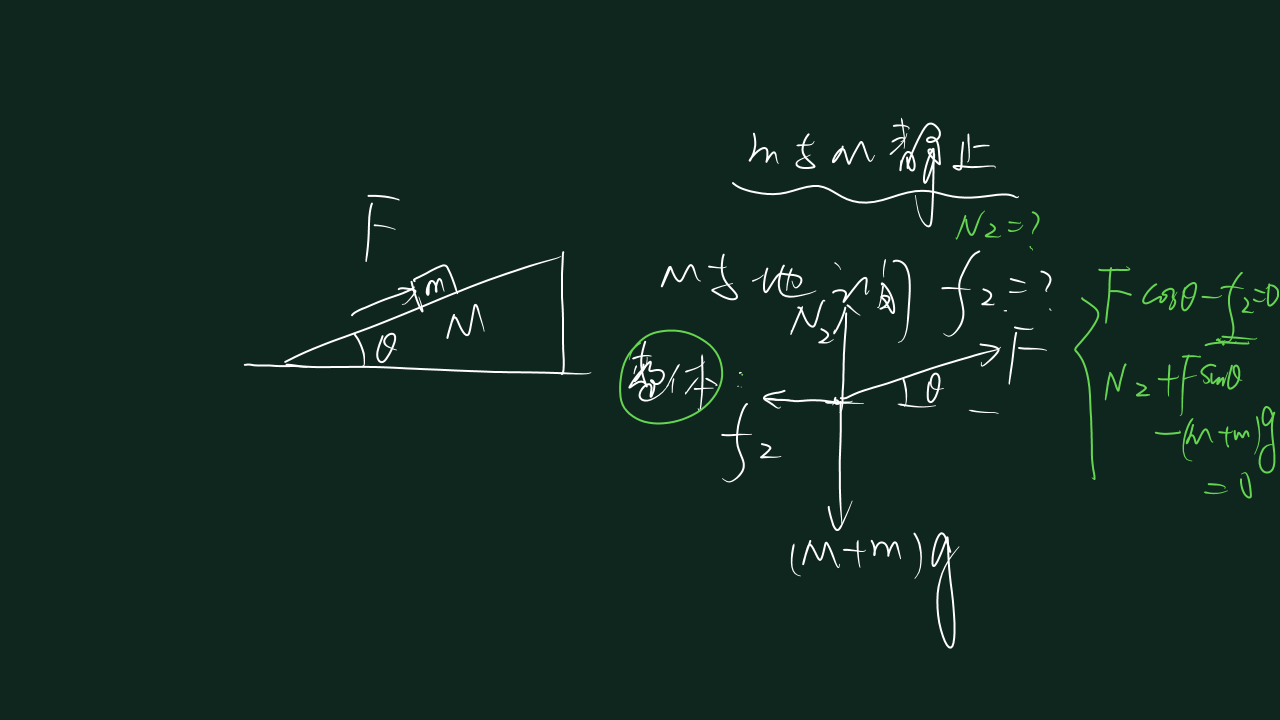 m与M静止
N₂=?
M与地之间 f₂=?
F
m
M
θ
整体:
N₂
F
θ
f₂
(M+m)g
F cosθ-f₂=0
N₂+F sinθ
-(M+m)g
=0